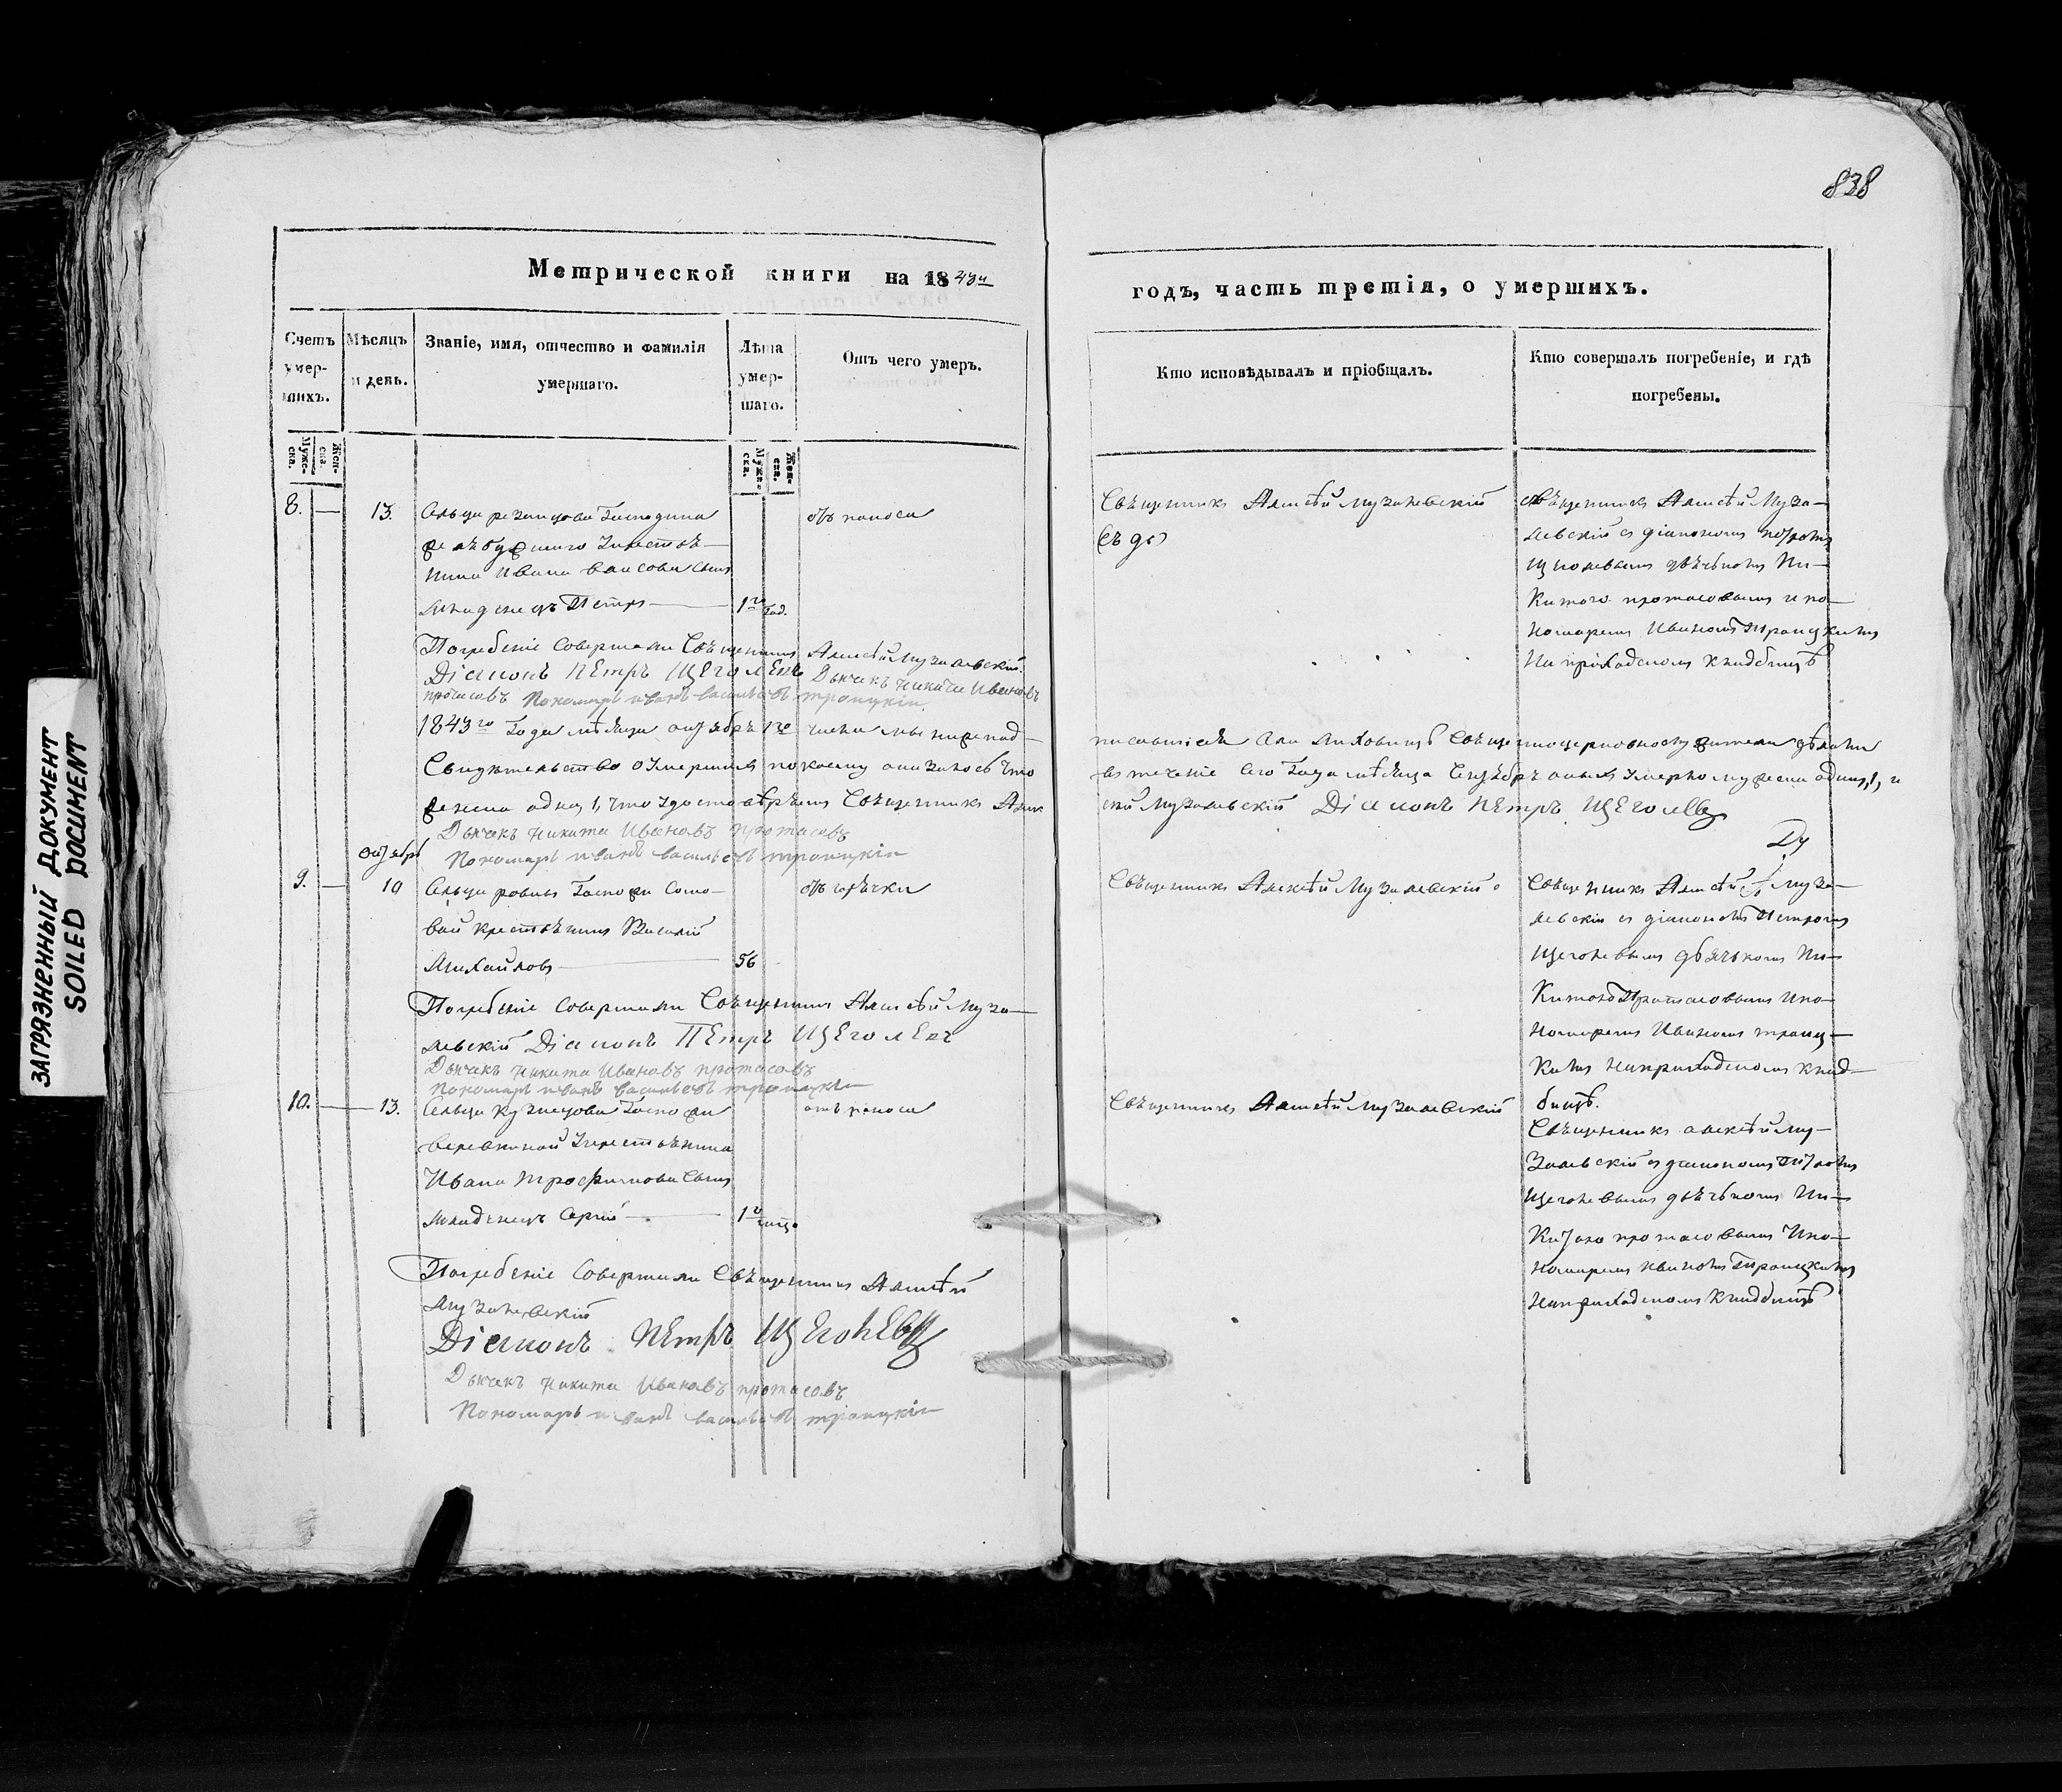 838
Метрической книги на 1843й
годъ, часть третія, о умершихъ.
Счетъ умер- шихъ.
Мѣсяцъ и день.
Званіе, имя, отчество и фамилія умершаго.
Лѣта умер- шаго.
Отъ чего умер.
Кто исповѣдывалъ и пріобщалъ.
Кто совершалъ погребеніе, и гдѣ погребены.
Муже- ска.
Жен- ска.
Муже- ска.
Жен- ска.
8. — 13. Сельца Господина
Ивана сынъ
младенецъ Петръ — 1го год.
отъ поноса
Священникъ Алексѣй Музалевскій
Священникъ Алексѣй Муза-
левскій съ діакономъ Петромъ
Щеголевымъ дьячкомъ Ни-
китою Протасовымъ и по-
номаремъ Иваномъ Троицкимъ
на приходскомъ кладбищѣ
Погребеніе совершали Священникъ Алексѣй Музалевскій
Діаконъ Петръ Щеголевъ Дьячекъ Никита Ивановъ
Протасовъ Пономарь Иванъ Васильевъ Троицкій
1843го года мѣсяца октября 1го числа мы нижепод-
писавшіеся
свидѣтельство о умершихъ по коему оказалось что
въ теченіе сего года мѣсяца умерло
что удостовѣряемъ Священникъ Алек-
сѣй Музалевскій Діаконъ Петръ Щеголевъ
Дьячекъ Никита Ивановъ Протасовъ
Пономарь Иванъ Васильевъ Троицкій
октябрь
9. — 10 Сельца Госпожи Сомо-
вой крестьянинъ Василій
Михайловъ — 56
отъ горячки
Священникъ Алексѣй Музалевскій
Священникъ Алексѣй Муза-
левскій съ діакономъ Петромъ
Щеголевымъ дьячкомъ Ни-
китою Протасовымъ и по-
номаремъ Иваномъ Троиц-
кимъ на приходскомъ клад-
бищѣ.
Погребеніе совершали Священникъ Алексѣй Муза-
левскій Діаконъ Петръ Щеголевъ
Дьячекъ Никита Ивановъ Протасовъ
Пономарь Иванъ Васильевъ Троицкій
10. — 13. Сельца Кузнецова Госпожи
Веревкиной крестьянина
Ивана Трофимова сынъ
младенецъ Сергій — 1го
отъ поноса
Священникъ Алексѣй Музалевскій
Священникъ Алексѣй Му-
залевскій съ діакономъ Петромъ
Щеголевымъ дьячкомъ Ни-
китою Протасовымъ и по-
номаремъ Иваномъ Троицкимъ
на приходскомъ кладбищѣ
Погребеніе совершали Священникъ Алексѣй
Музалевскій
Діаконъ Петръ Щеголевъ
Дьячекъ Никита Ивановъ Протасовъ
Пономарь Иванъ Васильевъ Троицкій
ЗАГРЯЗНЕННЫЙ ДОКУМЕНТ
SOILED DOCUMENT